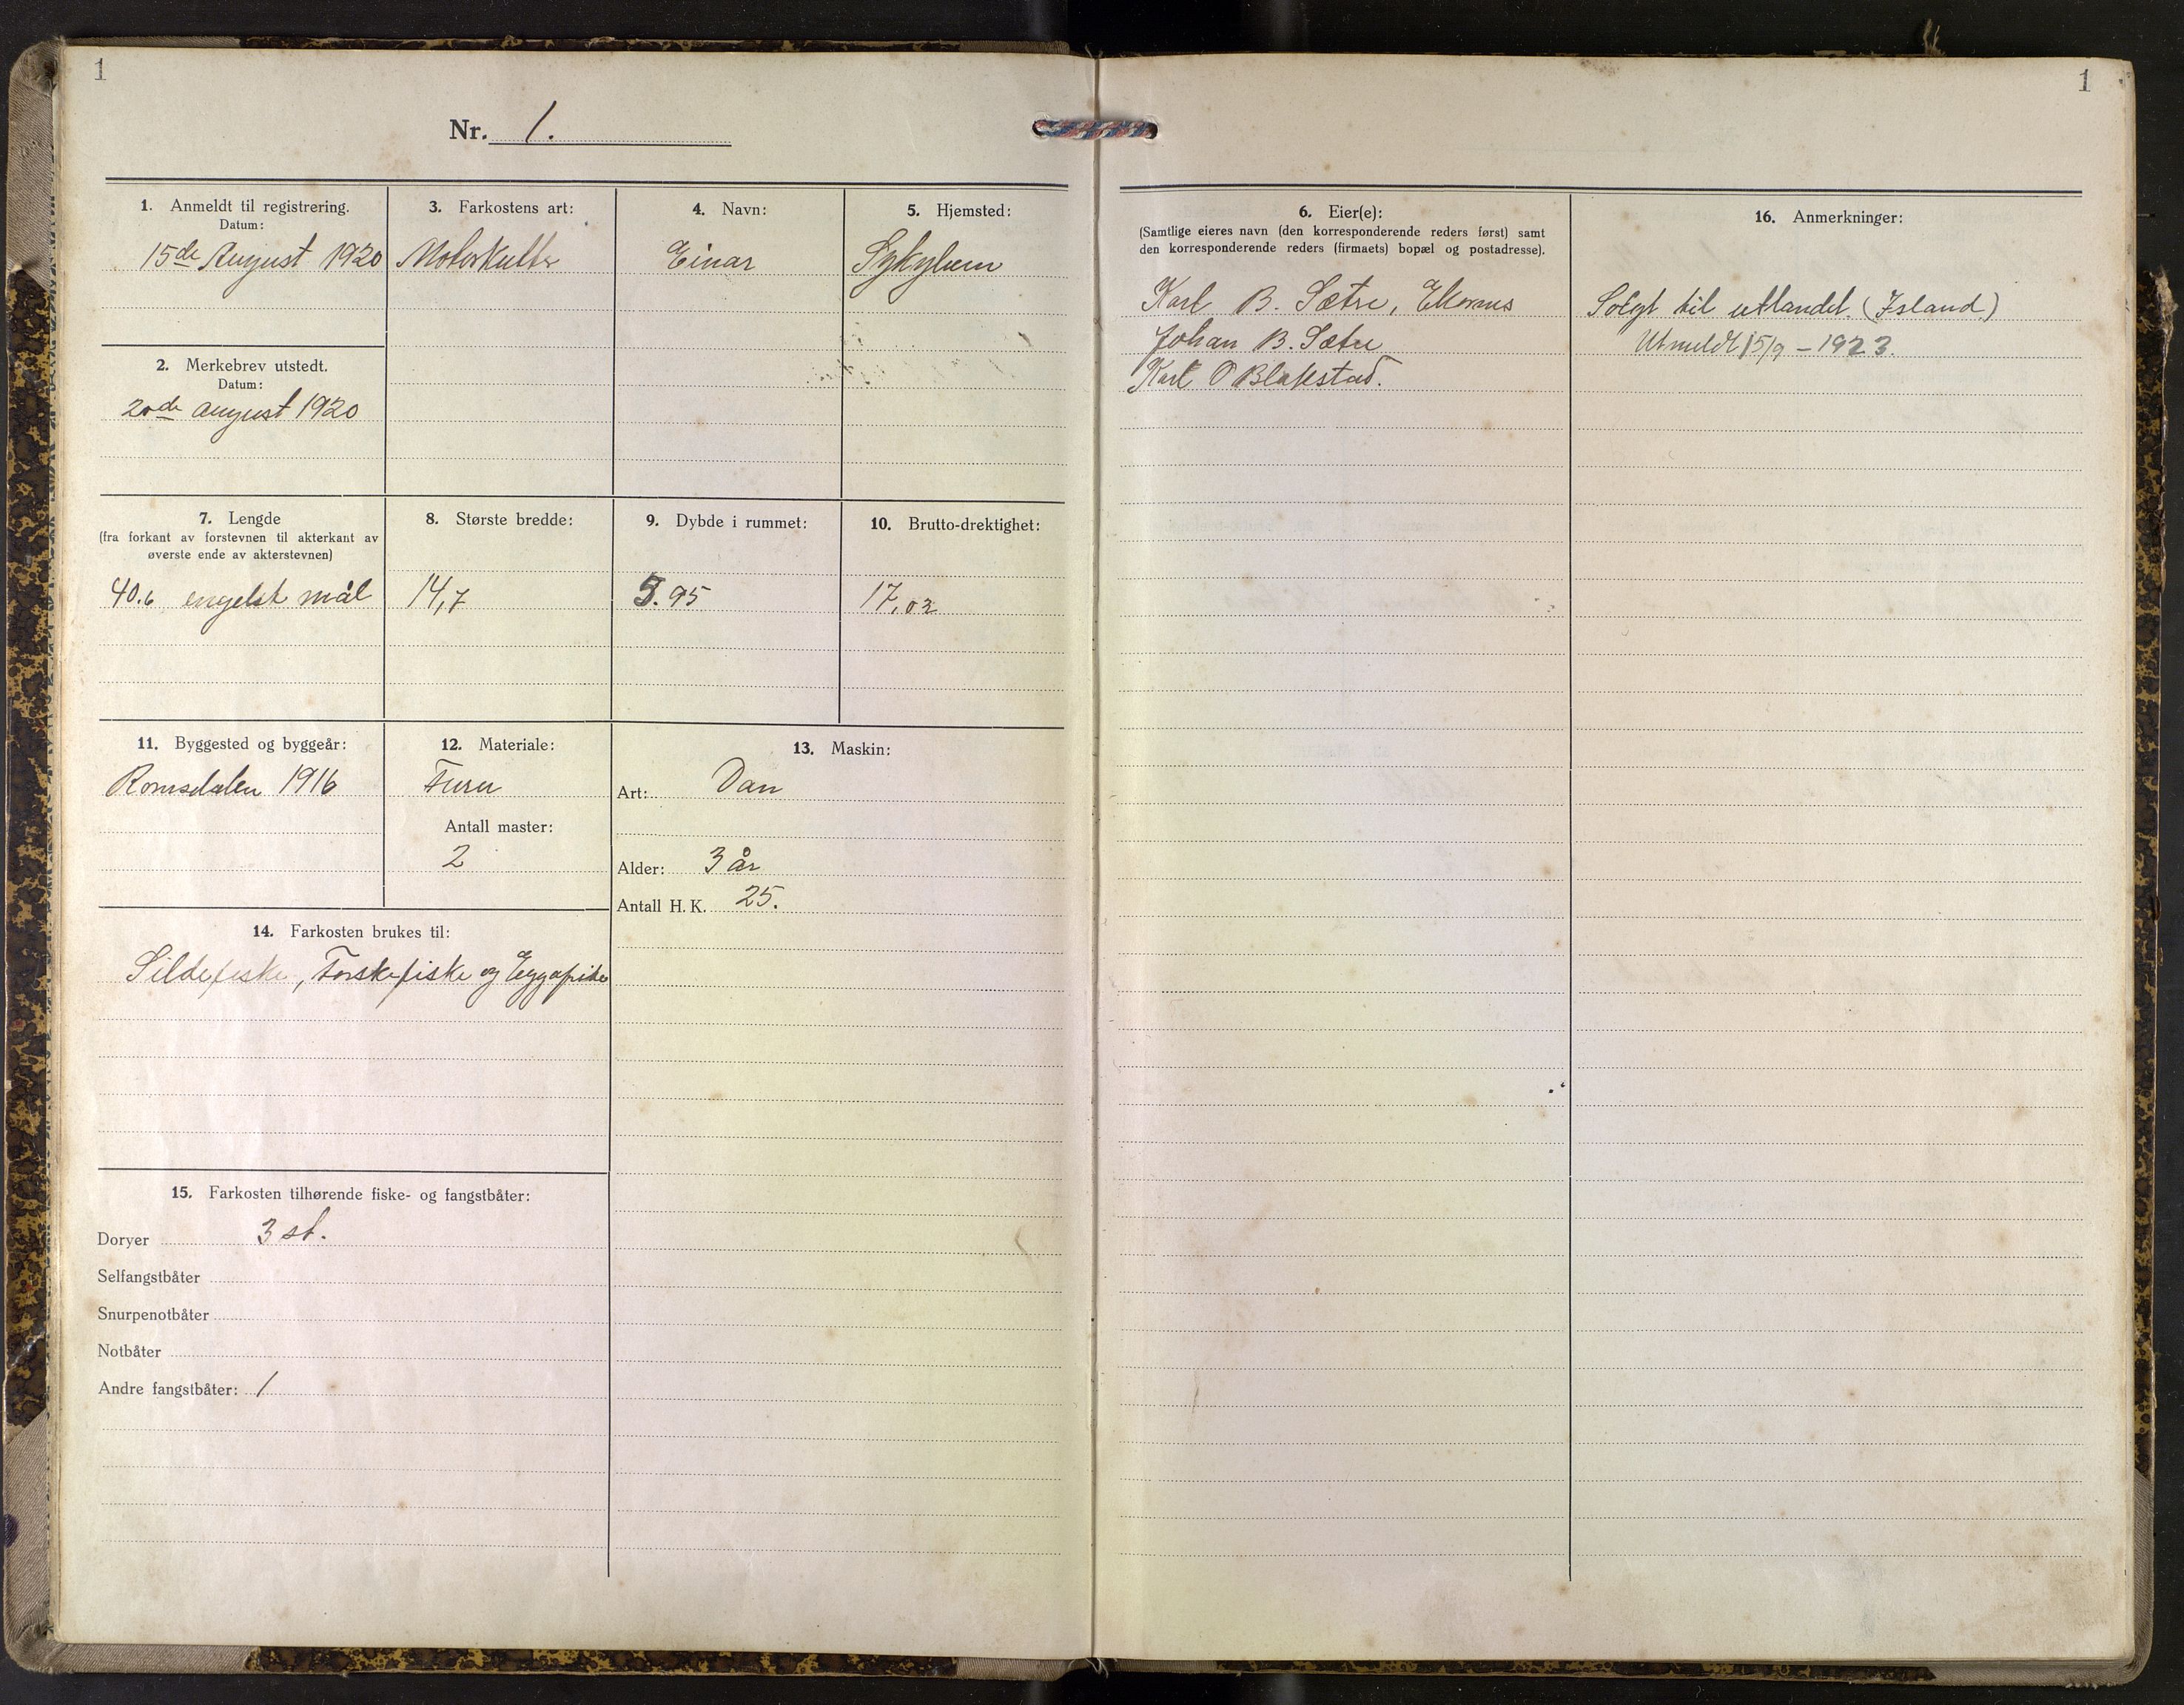 1
Nr. 1.
1. Anmeldt til registrering.
Datum:
15de August 1920
2. Merkebrev utstedt.
Datum:
20de august 1920
3. Farkostens art:
Motorkutter
4. Navn:
Einar
5. Hjemsted:
Sykylven
7. Lengde
(fra forkant av forstevnen til akterkant av
øverste ende av akterstevnen)
40.6 engelsk mål
8. Største bredde:
14,7
9. Dybde i rummet:
5.95
10. Brutto-drektighet:
17,03
11. Byggested og byggeår:
Romsdalen 1916
12. Materiale:
Furu
Antall master:
2
13. Maskin:
Art: Dan
Alder: 3 år
Antall H. K. 25.
14. Farkosten brukes til:
Sildefiske, Torskefiske og Eggafiske
15. Farkosten tilhørende fiske- og fangstbåter:
Doryer 3 st.
Selfangstbåter
Snurpenotbåter
Notbåter
Andre fangstbåter: 1
1
6. Eier(e):
(Samtlige eieres navn (den korresponderende reders først) samt
den korresponderende reders (firmaets) bopæl og postadresse).
Karl B. Sætre, Ekornes
Johan B. Sætre
Karl O Blakstad.
16. Anmerkninger:
Solgt til utlandet. (Island)
Utmeldt 15/9 - 1923.